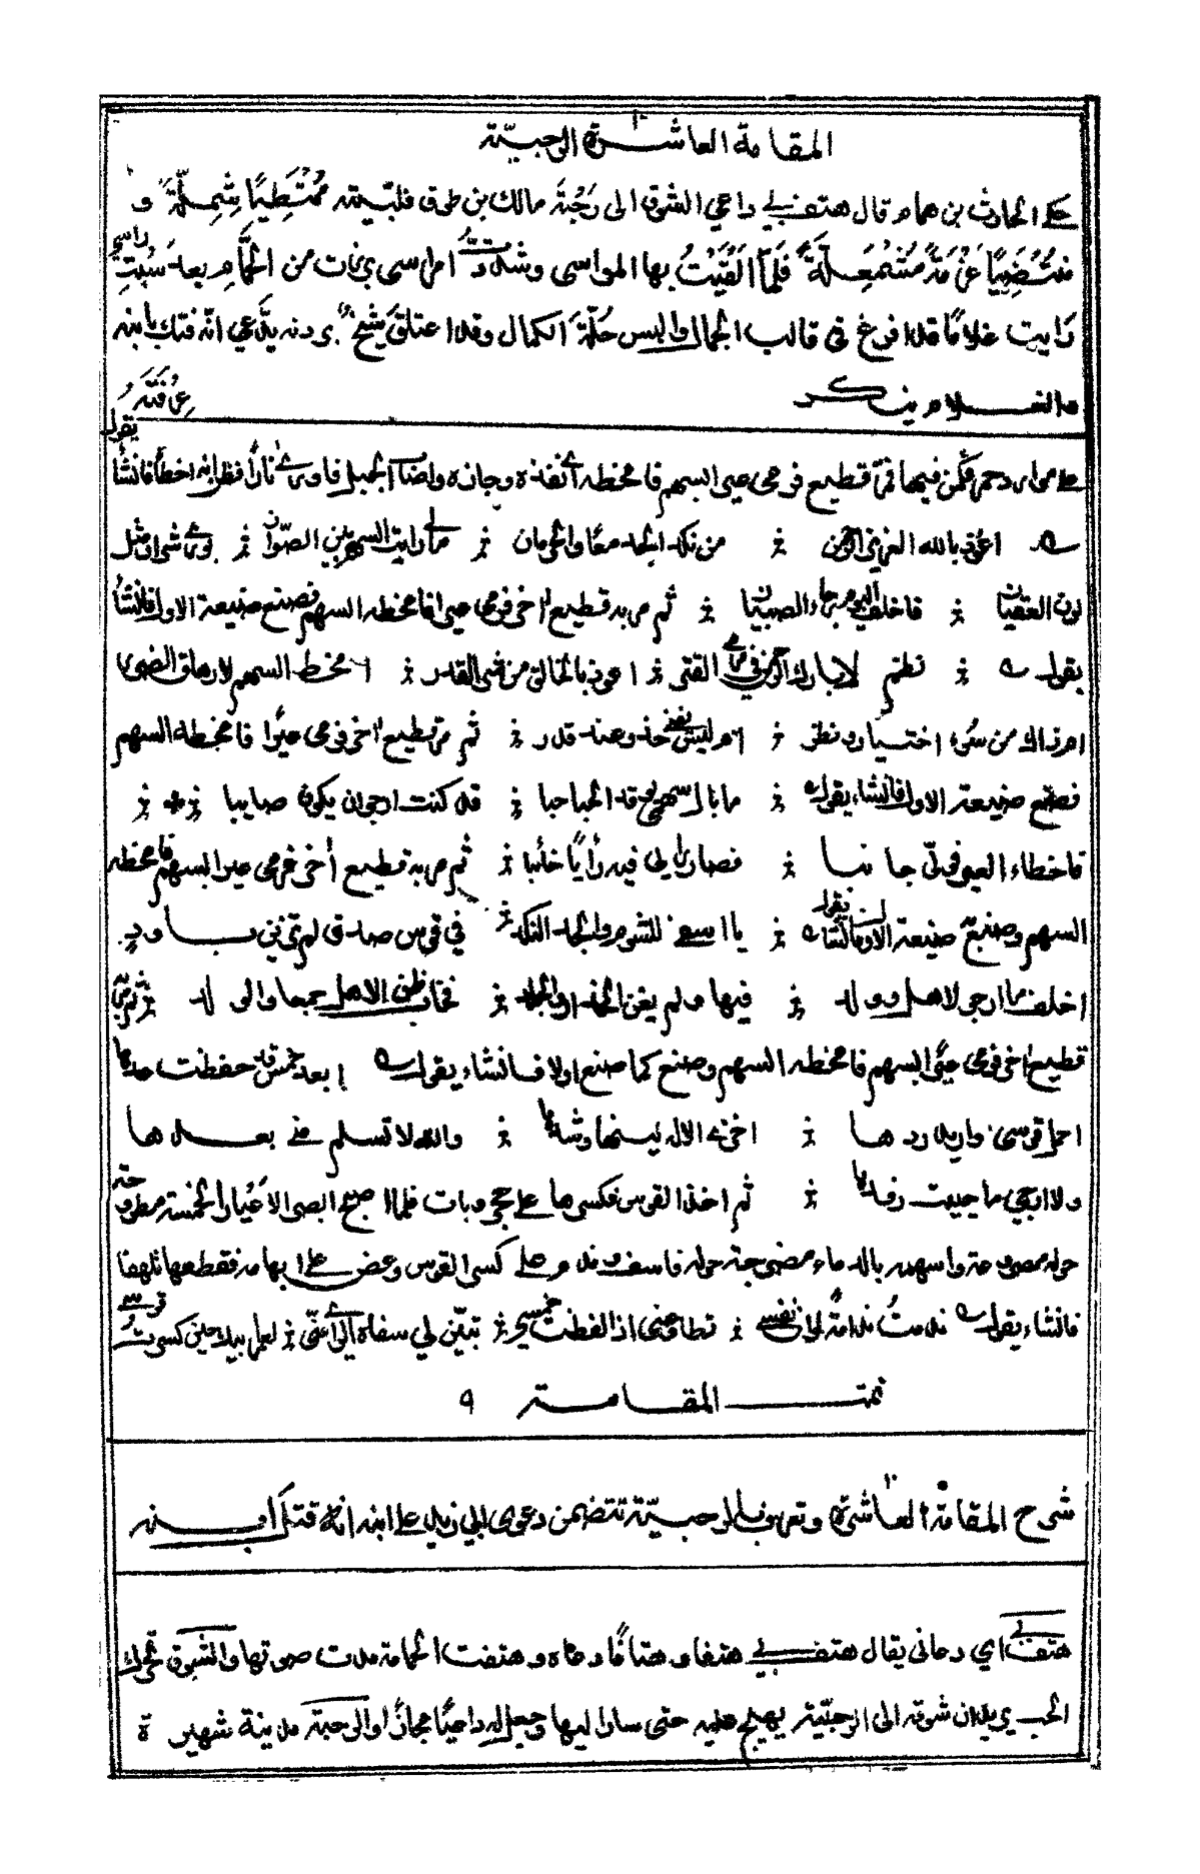 المقامة العاشرة الرحبيّة
حكى الحارث بن همام قال هتف بي داعي الشوق الى رَحْبَة مالك بن طوق فلبّيته مُمْتَطِيًا شِمِلّةً و
منْتَضِيًا عَزْمَةً مُشْمَعِلّةً فلمّا اَلْقَيْتُ بها المراسي وشددتُ امراسي وبرزت من الحمّامِ بعد سَبْتِ راسي
رايت غلامًا قد افرغ في قالب الجمال والبس حُلّةَ الكمال وقد اعتلق شيخٌ بردنه يدّعي انّه فتك بابنه
والغلام ينكر عرفته
على موارد حمر فكمن فيها فمرّ قطيع فرمى عيرا بسهم فامخطه اي انفذه وجازه واصاب الجبل فاورى نارًا فظن انه اخطأ فانشأ يقول
اعوذ بالله العزيز الرحمن من نكد الجد معًا والحرمان مالي رايت السهم بين الصوّان يوري شرارا مثل
لون العقيان فاخلف اليوم رجاء الصبيان ثم مر به قطيع اخر فرمى عيرا فامخطه السهم فصنع صنيعة الاول فانشأ
يقول نظم لا بارك الرحمن في رمي القتر اعوذ بالخالق من شر القدر اامخط السهم لارهاق الضرر
ام ذاك من سُوء اختيار ونظر ام ليس يغني حذر عند قدر ثم مر قطيع اخر فرمى عيرًا فامخطه السهم
فصنع صنيعة الاول فانشاء يقول ما بال سهمي يوقد الحباحبا قد كنت ارجو ان يكون صايبا
فاخطاء العير وولّى جانبا فصار رايي فيه رأيًا خائبا ثم مر به قطيع أخر فرمى عيرا بسهم فامخطه
السهم وصنع صنيعة الاول فانشاء يقول يا اسفى للشوم والجد النكد في قوس صدق لم تزين باود
اخلف ما ارجو لاهل وولد فيها ولم يغن الحذار والجلد فخاب ظن الاهل جمعا والولد ثم مرّ به
قطيع اخر فرمى عيرًا بسهم فامخطه السهم وصنع كما صنع اولا فانشاء يقول ابعد خمس قد حفظت عدها
احمل قوسي واريد ردها اخزى الاله لينها وشدها والله لا تسلم مني بعدها
ولا ارجي ما حييت رفدها ثم اخذ القوس فكسرها على حجر وبات فلما اصبح ابصر الاعْيار الخمسة مطروحة
حوله مصروعة واسهمه بالدماء مضرجة حوله فاسف وندم على كسر القوس وعض على ابهامه فقطعها تلهفا
فانشاء يقول ندمتُ ندامةً لو ان نفسي تطاوعني اذا لقطعت خمسي تبيّن لي سفاه الراي منّي لعمر ابيك حين كسرتُ قوسي
تمت المقامة ٩
شرح المقامة العاشرة وتعرف بالرحبيّة تتضمن دعوى ابي زيد على ابنه انه قتل ابنه
هتف بي اي دعاني يقال هتف بي هتفا وهتافًا دعاه وهتفت الحمامة مدت صوتها والشوق تحرك
الحب يريد ان شوقه الى الرحبّية يهيج عليه حتى سار اليها وجعل له داعيًا مجازًا والرحبة مدينة شهيرة